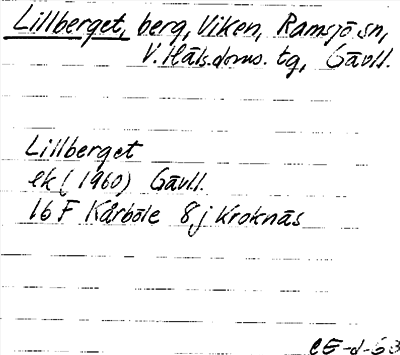 Lillberget, berg, Viken, Ramsjö sn,
V. Häls. doms. tg, Gävll.
Lillberget
ek (1960) Gävll.
16 F Kårböle 8j Kroknäs